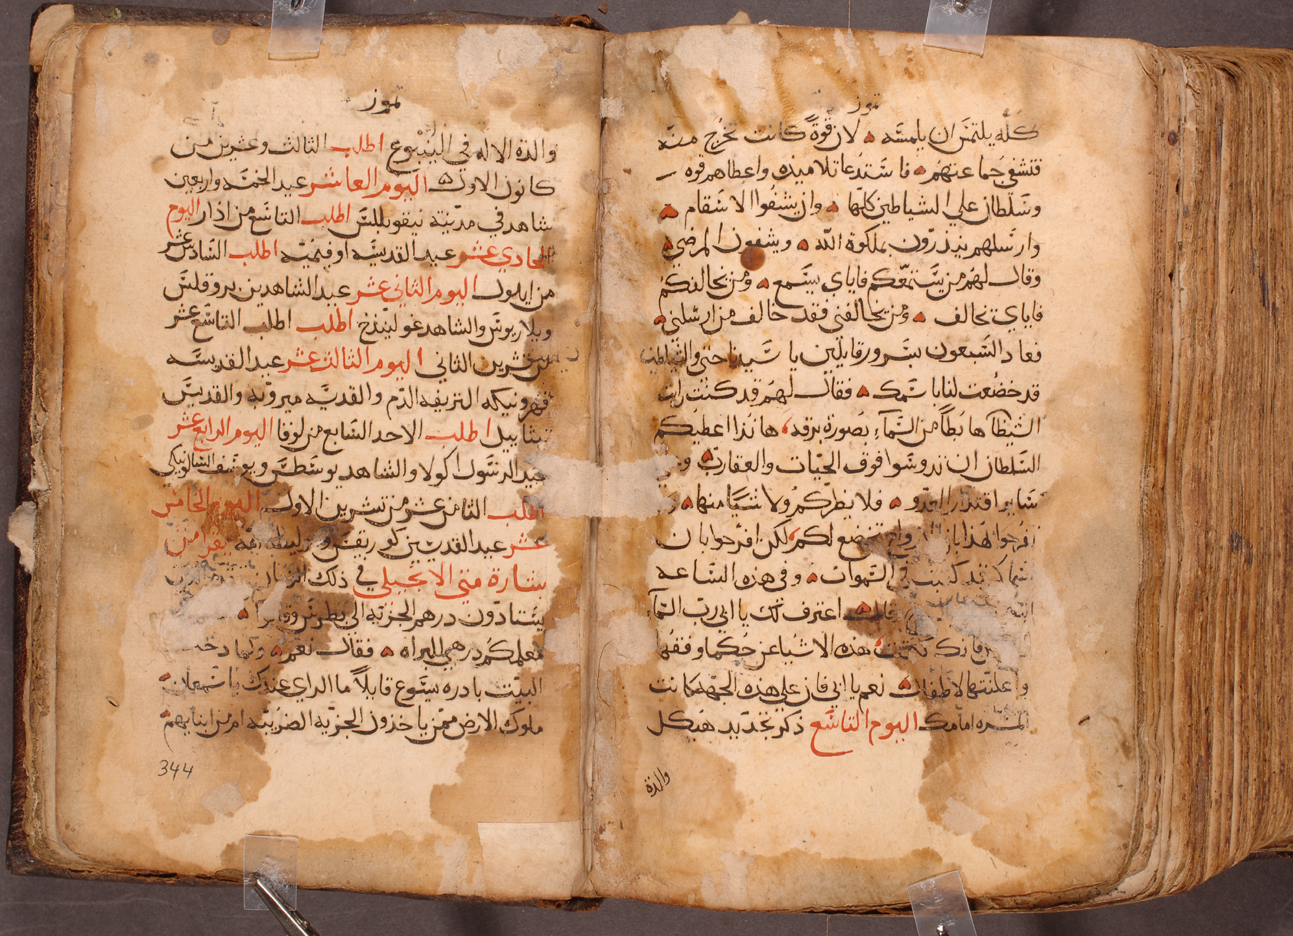 تموز
كله يلتمس ان يلمسه لان قوة كانت تخرج منه
فتشفي جماعتهم فاستدعا تلاميذه واعطاهم قوه
وسلطان علي الشياطين كلها وان يشفوا الاسقام
وارسلهم ينذرون بملكوة الله ويشفون المرضي
وقال لهم من يستمع منكم فاياي يسمع ومن يخالفكم
فاياي يخالف ومن يخالفني فقد خالف من ارسلني
فعاد السبعون بسرور قايلين يا سيدنا حتي والشياطين
قد خضعت لنا باسمك فقال لهم قد كنت رايت
الشيطان هابطا من السماء بصورة برق هانذا اعطيكم
السلطان ان تدوسوا فوق الحيات والعقارب و
ساير اقتدار العدو فلا يضركم ولا شيا منها
تفرحوا بهذا تخضع لكم لكن افرحوا بان
اسماكم قد كتبت في السموات وفي هذه الساعه
اعترف لك يا ابي رب السما
هذه الاشيا عن حكما وفقها
واعلنتها لاطفال نعم يا ابي فان علي هذه الجهه كانت
المسره امامك اليوم التاسع ذكر تجديد هيكل
والدة
تموز
والدة الاله في الينبوع اطلب الثالث وعشرين من
كانون الاول اليوم العاشر عيد الخمسه واربعين
شاهد في مدينة نيقوبلس اطلب التاسع من اذار اليوم
الحادي عشر عيد القديسه اوفيميه اطلب السادس عشر
من ايلول اليوم الثاني عشر عيد الشاهدين بروقلس
ويلاريوس والشاهد غولينذخ اطلب اطلب التاسع عشر
من تشرين الثاني اليوم الثالث عشر عيد القديسه
فهرونيكه النزيفه الدم والقديسه ميروبه والقديس
اطلب الاحد السابع من لوقا اليوم الرابع عشر
عيد الرسول اكولا والشاهد يوسطس ويوسف السالونيكي
اطلب الثامن عشر من تشرين الاول اليوم الخامس
عشر عيد القديسين كوريقس ويوليطه امه يقرا من
بشارة متي الانجيلي في ذلك الزمان
يستادون درهم الجزيه الي بطرس وقالوا
معلمكم درهمي المراه فقال نعم ولما دخل
البيت بادره يسوع قايلا ما الراي عندك يا سمعان
ملوك الارض ممن ياخذون الجزيه الضريبه امن ابنايهم
344